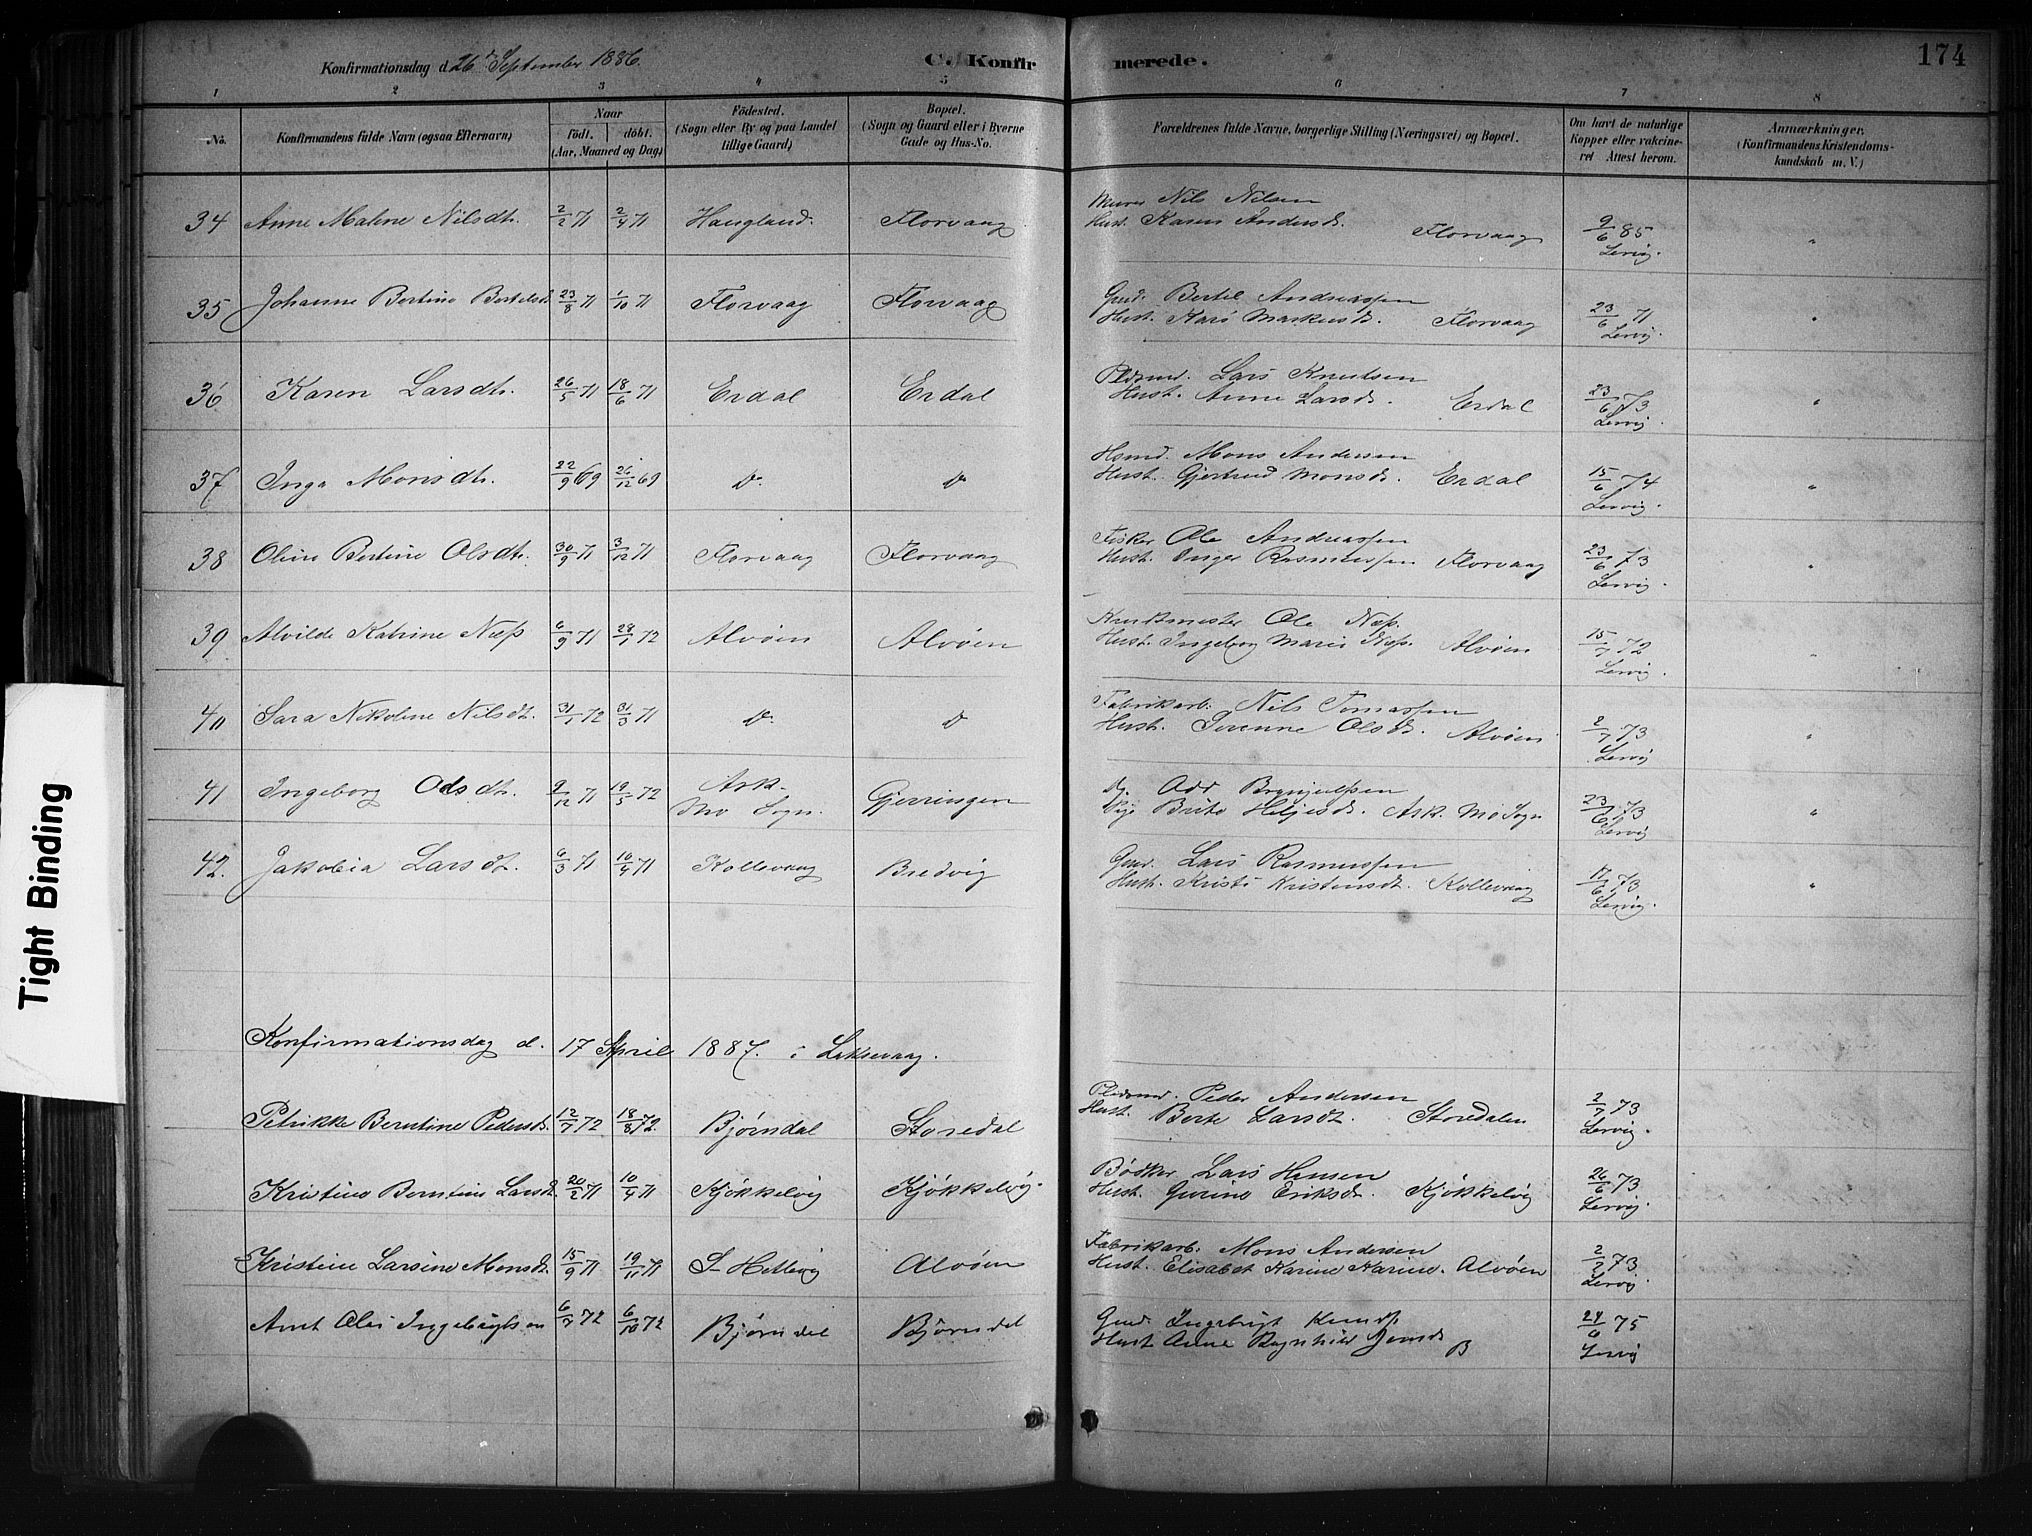 Konfirmationsdag d. 26 September 1886.
C. Konfirmerede.
174
1 2 3 4 5 6 7 8
No.
Konfirmandens fulde Navn (ogsaa Efternavn)
Naar
födt. döbt.
(Aar, Maaned og Dag)
Födested.
(Sogn eller By og paa Landet
tillige Gaard)
Bopæl.
(Sogn og Gaard eller i Byerne
Gade og Hus-No.
Forældrenes fulde Navne, borgerlige Stilling (Næringsvei) og Bopæl.
Om havt de naturlige
Kopper eller vakcine-
ret Attest herom.
Anmærkninger.
(Konfirmandens Kristendoms-
kundskab m. V.)
34 Anne Malene Nilsdt. 2/2 71 2/4 71 Haugland. Florvaag Murer Nils Nilsen
Hust. Karen Andersd. Florvaag 9/6 85 Lervig. "
35 Johanne Bertine Bertelsd. 23/8 71 1/10 71 Florvaag Florvaag Gmd. Bertel Andreassen
Hust. Kari Markusd. Florvaag 23/6 71 Lervig. "
36 Karen Larsdt. 26/5 71 18/6 71 Erdal Erdal Pldsmd. Lars Knutsen
Hust. Anne Larsd. Erdal 23/6 73 Lervig. "
37 Inga Monsdt. 22/9 69 26/12 69 do. do Hsmd. Mons Andersen
Hust. Gjertrud Monsd. Erdal 15/6 74 Lervig. "
38 Oline Bertine Olsdt. 30/9 71 3/12 71 Florvaag Florvaag Fisker Ole Andreassen
Hust. Inger Rasmussen Florvaag 23/6 73 Lervig. "
39 Alvilde Katrine Næss 6/9 71 28/1 72 Alvøen Alvøen Ole Næss.
Hust. Ingeborg Marie Næss. Alvøen 15/7 72 Lervig. "
40 Sara Nikoline Nilsdt. 31/1 72 31/3 71 do. do Fabrikarb. Nils Tomassen
Hust. Severine Olsd. Alvøen 2/7 73 Lervig "
41 Ingeborg Odsdt. 9/12 71 19/5 72 Ask. Mo Sogn. Gjerringen Odd Brynjulfsen
Pige Brita Heljesd. Ask. Mo Sogn 23/6 73 Lervig "
42. Jakobia Larsdt. 6/3 71 10/4 71 Kollevaag Bredvig Gmd. Lars Rasmussen
Hust. Kristi Kristensdt. Kollevaag 17/6 73 Lervig. "
Konfirmationsdag d. 17 April 1887. i Laksevaag.
Petrikke Berntine Pedersd. 12/7 72 18/8 72. Bjørndal Storedal Pldsmd. Peder Andersen
Hust. Berte Larsdt. Storedalen 2/7 73 Lervig.
Kristine Berntine Larsdt. 20/2 71 10/4 71 Kjøkkelvig Kjøkkelvig. Bödker Lars Hansen
Hust. Gurine Eriksd. Kjøkkelvig 26/6 73 Lervig.
Kristine Larsine Monsdt. 15/9 71 19/11 71 S Hetlevig Alvøen Fabrikarb. Mons Andersen
Hust. Elisabet Karine Karine. Alvøen 2/2 73 Lervig.
Arnt Olai Ingebrigtsen 6/7 72 6/10 72 Bjørndal Bjørndal Gmd. Ingebrigt Knuds.
Hust Anne Ragnhild Jensd. B 24/6 75 Lervig
Tight Binding